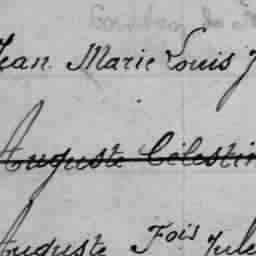 Jean Marie Louis J
Auguste Célestin
Auguste Fois Jule